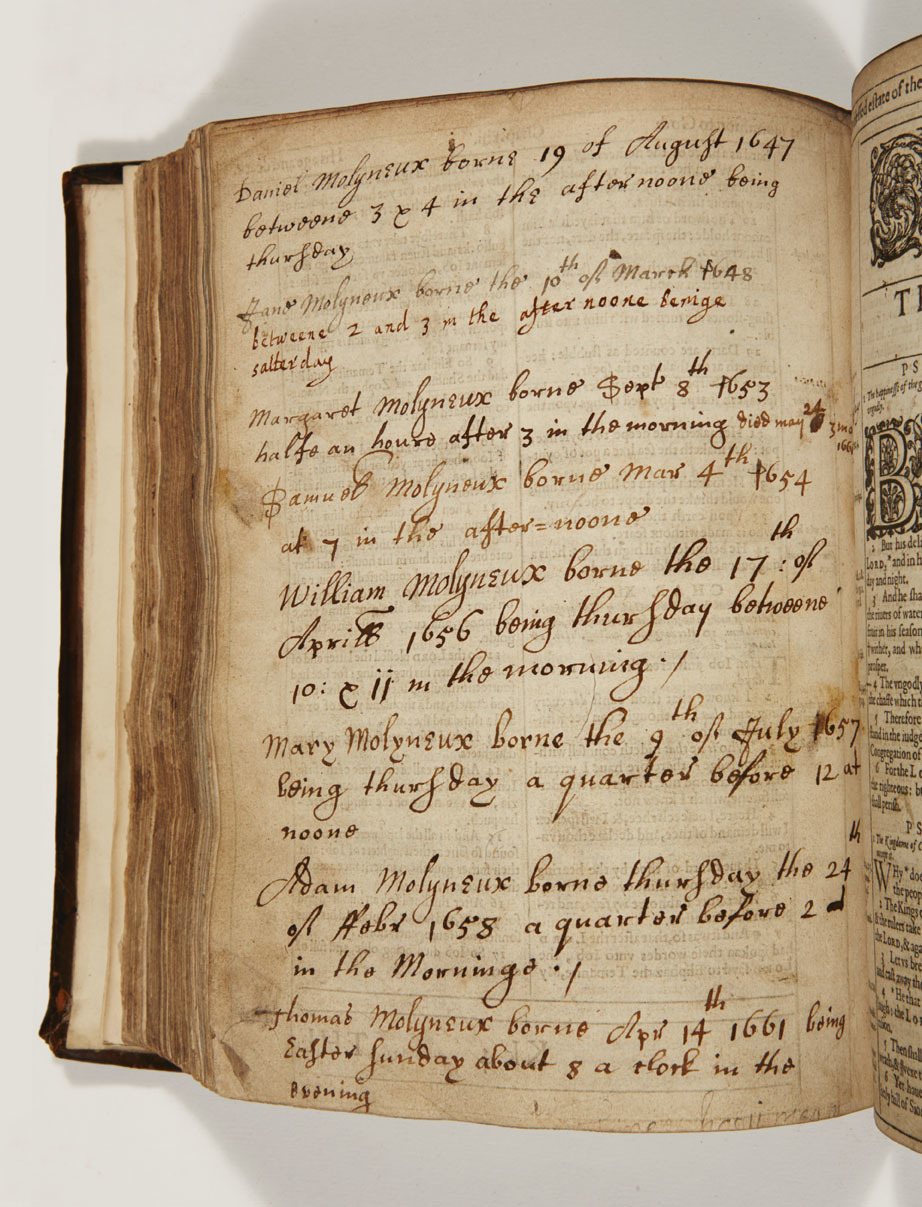 Daniel Molyneux borne 19 of August 1647
betweene 3 & 4 in the after noone being
thursday
Jane Molyneux borne the 10th of March 1648
betweene 2 and 3 in the after noone benige
satterday
Margaret Molyneux borne Sept 8th 1653
halfe an houre after 3 in the morning died may 24
Samuel Molyneux borne Mar 4th 1654
at 7 in the after=noone
William Molyneux borne the 17th: of
Aprill 1656 being thursday betweene
10: & 11 in the morning ./
Mary Molyneux borne the 9th of July 1657
being thursday a quarter before 12 at
noone
Adam Molyneux borne thursday the 24th
of ffebr 1658 a quarter before 2
in the Morninge ./
Thomas Molyneux borne Apr 14th 1661 being
Easter sunday about 8 a clock in the
evening
sed estate of the
PS
2 But his deli
LORD, * and in h
day and night.
3 And he sha
the riuers of water
fruit in his season
wither, and wh
prosper.
4 The vngodly
the chaffe which t
5 Therefore
stand in the iudge
Congregation of
6 For the Lo
the righteous: b
shall perish.
PS
2 The Kingdome of C
WHy * doe
the peop
2 The Kings
& the rulers take
the LORD, & aga
3 Let vs bre
and cast away the
4 * He that
laugh: the Lo
5 Then shall
6 Yet haue